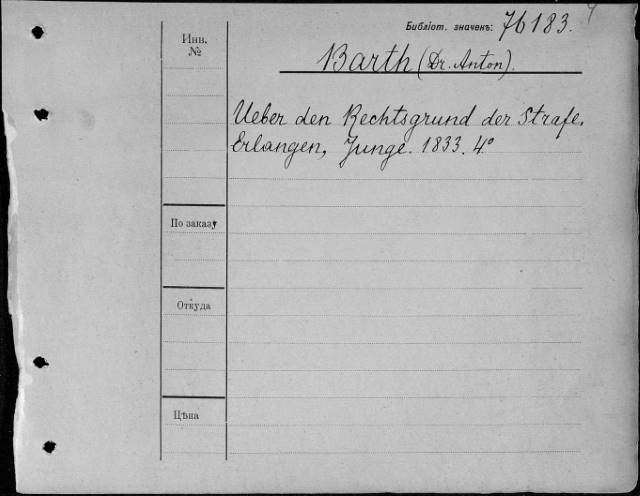 Библіот. значекъ: 76183.
Инв.
№
Barth (Dr. Anton).
Ueber den Rechtsgrund der Strafe.
Erlangen, Junge. 1833. 4°
По заказу
Откуда
Цѣна